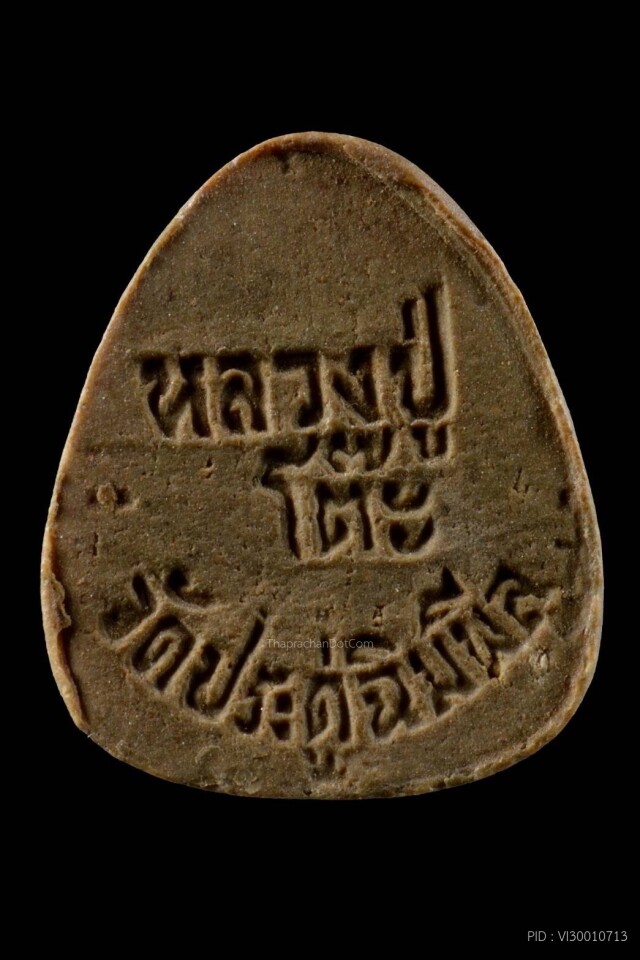 หลวงปู่
โต๊ะ
วัดประดู่ฉิมพลี
ThaprachanDotCom
PID : VI30010713